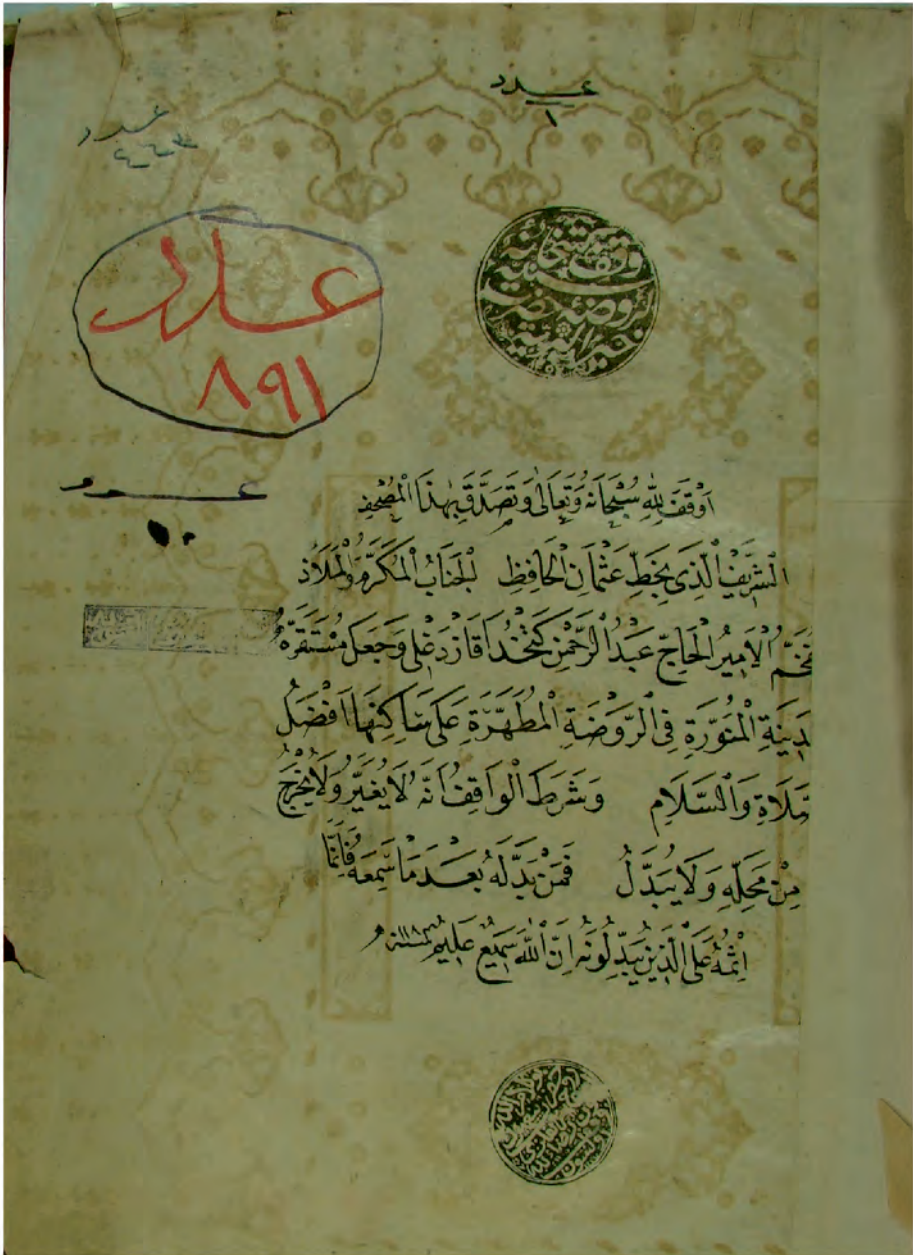 عدد
١
عدد
٤٤٣
عدد
٨٩١
عدد
١٠
وقف كتبخانه
الروضة
خير البرية
اَوْقَفَ لِلّٰهِ سُبْحَانَهُ وَتَعَالٰى وَتَصَدَّقَ بِهٰذَا الْمُصْحَفِ
الْشَرِيْفِ الَّذِى بِخَطِّ عُثْمَانِ الْحَافِظِ الْجَنَابُ الْمُكَرَّمُ وَالْمَلَاذُ
فَخَّمُ الْاَمِيْرُ الْحَاجُّ عَبْدُ الرَّحْمٰنِ كَتْخُدَا قَازْدَغْلِى وَجَعَلَ مُسْتَقَرَّهُ
لْمَدِيْنَةِ الْمُنَوَّرَةِ فِى الرَّوْضَةِ الْمُطَهَّرَةِ عَلَى سَاكِنِهَا اَفْضَلُ
صَّلَاةِ وَالسَّلَامِ وَشَرَطَ الْوَاقِفُ اَنَّهُ لَا يُغَيَّرُ وَلَا يُخْرَجُ
مِنْ مَحَلِّهِ وَلَا يُبَدَّلُ فَمَنْ بَدَّلَهُ بَعْدَ مَا سَمِعَهُ فَاِنَّمَا
اِثْمُهُ عَلَى الَّذِيْنَ يُبَدِّلُوْنَهُ اِنَّ اللّٰهَ سَمِيْعٌ عَلِيْمٌ